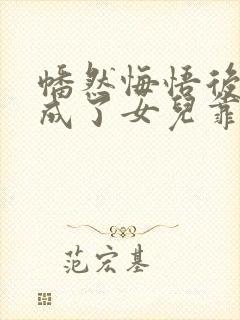 幡然悔悟後
成了女兒靠
范宏基